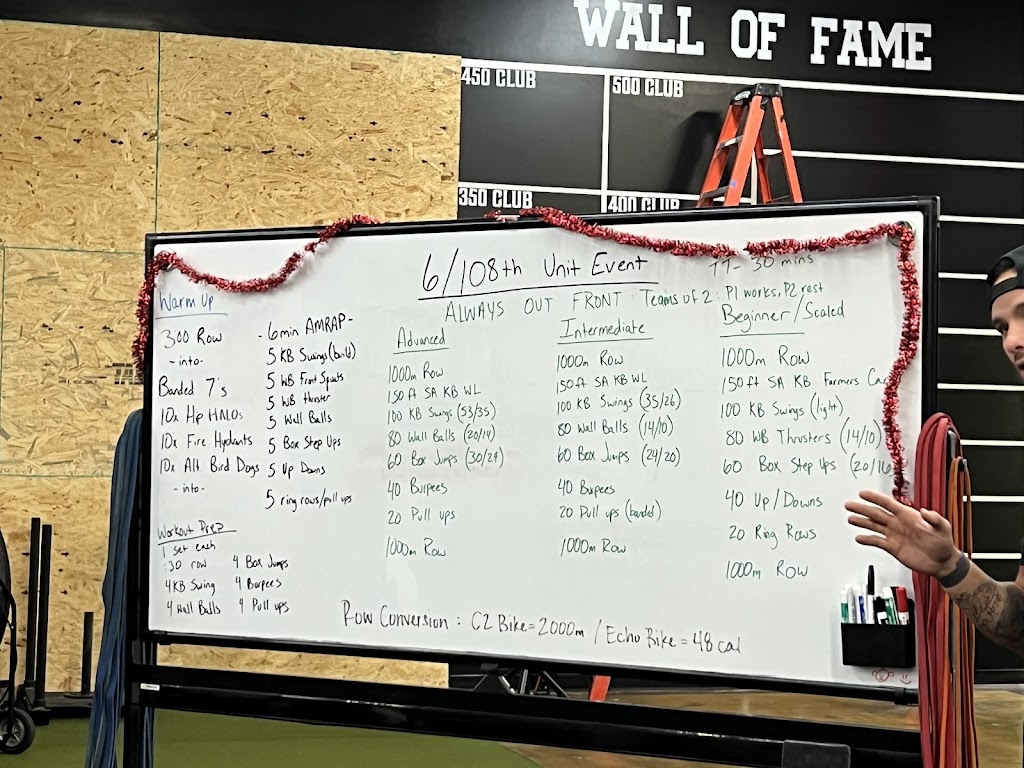 WALL OF FAME
450 CLUB
500 CLUB
350 CLUB
400 CLUB
6/108th Unit Event
TT- 30 mins
ALWAYS OUT FRONT : Teams of 2 : P1 works, P2 rest
Warm Up
300 Row
-into-
Banded 7's
10x Hip HALOs
10x Fire Hydrants
10x Alt Bird Dogs
-into-
Workout Prep
1 set each
:30 row
4 KB Swing
4 Wall Balls
4 Box Jumps
4 Burpees
4 Pull ups
-6min AMRAP-
5 KB Swings (build)
5 WB Front Squats
5 WB thruster
5 Wall Balls
5 Box Step Ups
5 Up Downs
5 ring rows/pull ups
Advanced
1000m Row
150ft SA KB WL
100 KB Swings (53/35)
80 Wall Balls (20/14)
60 Box Jumps (30/24)
40 Burpees
20 Pull ups
1000m Row
Intermediate
1000m Row
150ft SA KB WL
100 KB Swings (35/26)
80 Wall Balls (14/10)
60 Box Jumps (24/20)
40 Burpees
20 Pull ups (banded)
1000m Row
Beginner/Scaled
1000m Row
150ft SA KB Farmers Car
100 KB Swings (light)
80 WB Thrusters (14/10)
60 Box Step Ups (20/16
40 Up/Downs
20 Ring Rows
1000m Row
Row Conversion : C2 Bike = 2000m / Echo Bike = 48 cal